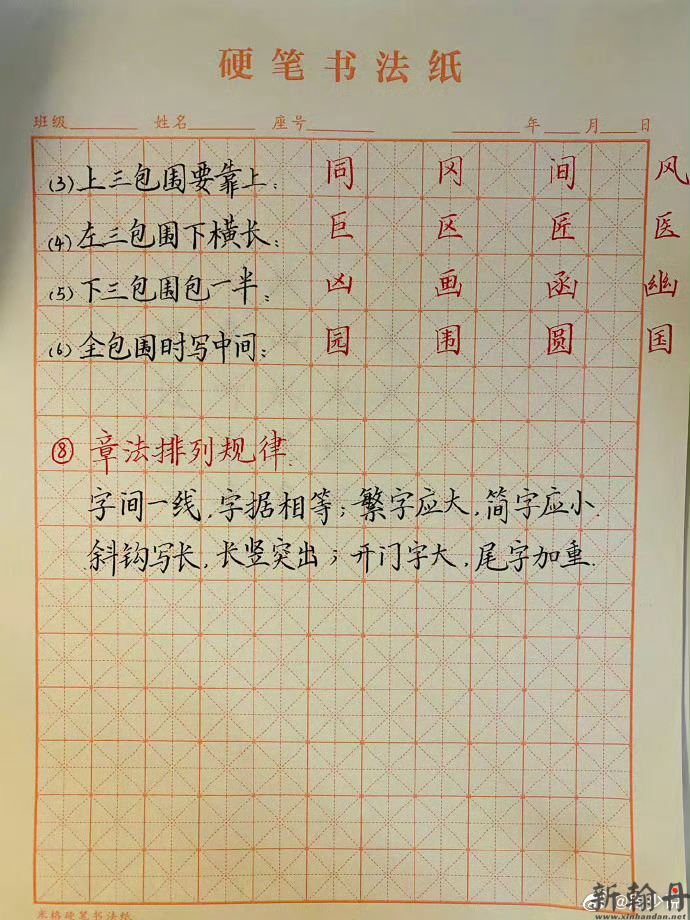 硬笔书法纸
班级 姓名 座号 年 月 日
(3)上三包围要靠上: 同 冈 间 风
(4)左三包围下横长: 巨 区 匠 医
(5)下三包围包一半: 凶 画 函 幽
(6)全包围时写中间: 园 围 圆 国
⑧ 章法排列规律:
字间一线,字据相等;繁字应大,简字应小.
斜钩写长,长竖突出;开门字大,尾字加重.
米格硬笔书法纸
新翰丹
www.xinhandan.net